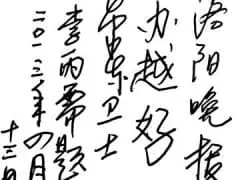 洛阳晚报
办越好
卫士
李题
二〇一三年四月
十三日